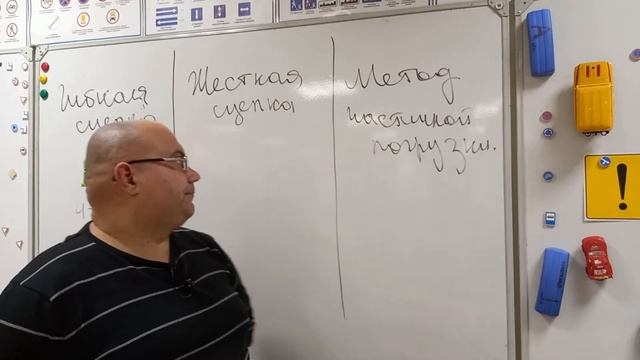 Гибкая
сцепка
Жесткая
сцепка
Метод
частичной
погрузки.
4-